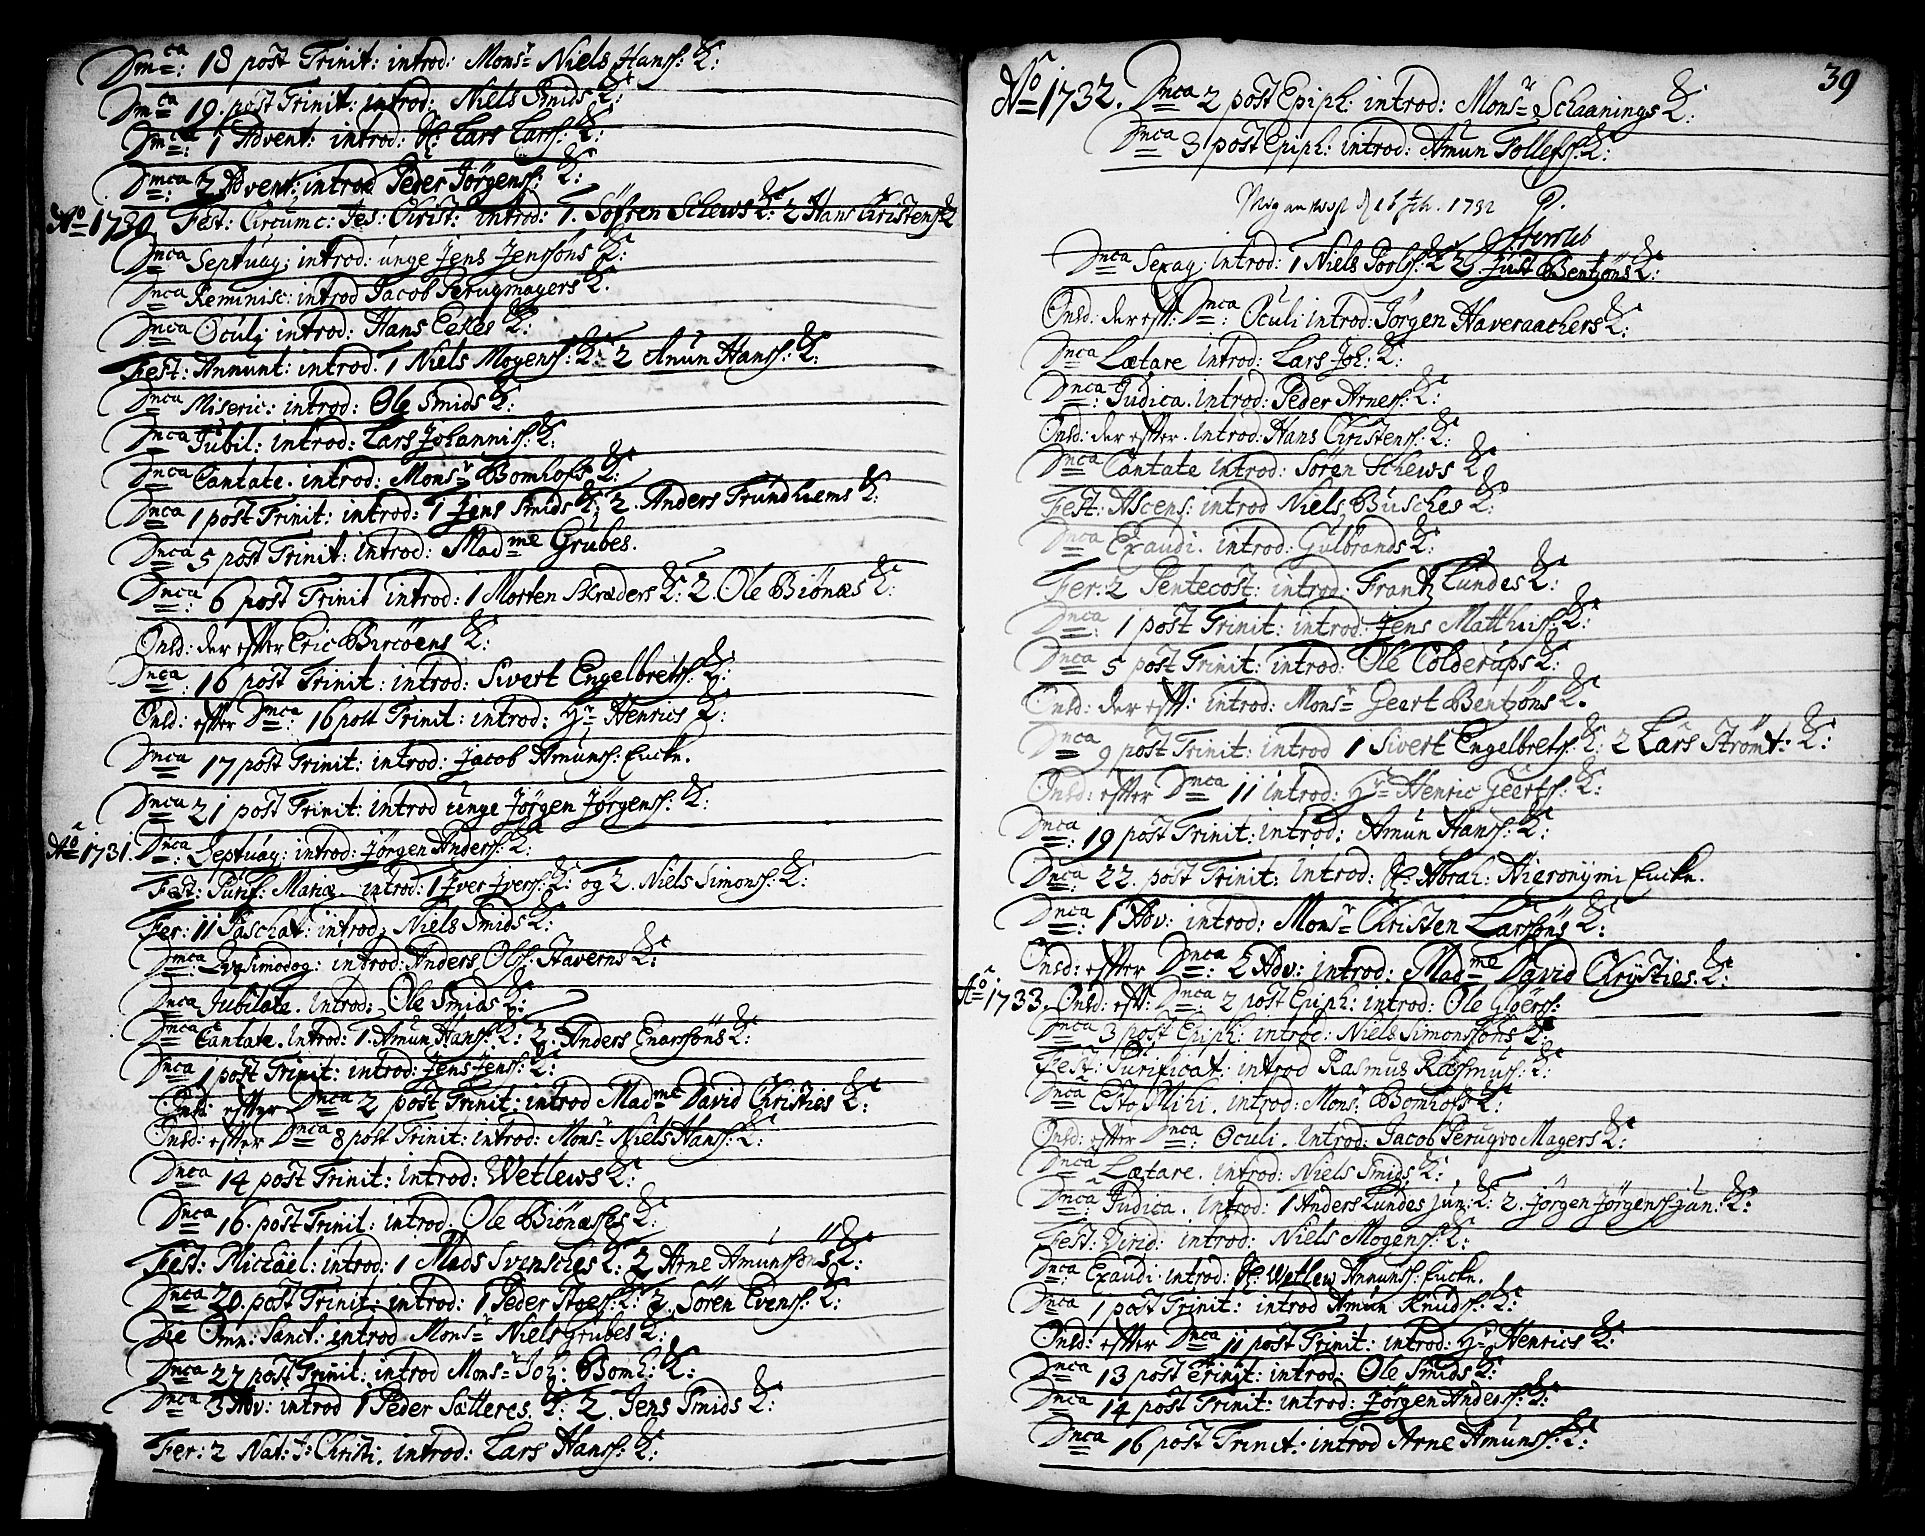 Dmca: 18 post Trinit: introd: Monsr Niels Hanss: K:
Dmca 19. post Trinit: introd: Niels Smids K:
Dmca: 1 Advent: introd: Lars Larss: K:
Dmca 2 Advent: introd Peder Jörgenss: K:
Ao 1730. Fest: Circumc: Jes: Christ: introd: 1. Söfren Schews K: 2 Hans Christens: K
Dnca Septuag: introd: unge Jens Jenssöns K:
Dnca Reminisc: introd Jacob Perugmagers K:
Dnca Oculj introd: Hans Eekes K:
Fest: Annunt: introd. 1 Niels Mogenss: K: 2 Amun Hanss: K:
Dnca Miseric: introd: Ole Smids K:
Dnca Jubil: introd: Lars Johanniss: K:
Dnca Cantate. introd: Monsr Bomhofs K:
Dnca 1 post Trinit: introd: 1 Jens Smids K: 2. Anders Trundhiems K:
Dnca 5 post Trinit: introd: Madme Grubes.
Dnca: 6 post Trinit introd: 1 Morten Skræders K: 2. Ole Biönæs K:
Onsd: der efter Eric Bircöens K:
Dnca: 16 post Trinit: introd: Sivert Engelbretss: K:
Onsd: efter Dnca: 16 post Trinit: introd: Hr Henrics K:
Dnca 17 post Trinit: introd: Jacob Amunss: Encke.
Dnca 21 post Trinit: introd unge Jörgen Jörgenss: K:
Ao 1731. Dnca: Septuag: introd: Jörgen Anderss: K:
Fest: Purif: Mariæ introd: 1 Iver Iverss: K: og 2. Niels Simonss: K:
Fer: 11 Paschat: introd: Niels Smids K:
Dmca: Qvasimodog: introd: Anders Olss: Staverns K:
Dnca Jubilate. introd: Ole Smids K:
Dnca Cantate. introd: 1. Amun Hanss: K: 2. Anders Enarssöns K:
Dnca 1 post Trinit: introd: Jens Jenss: K:
Onsd: efter Dnca 2 post Trinit: introd Madme David Christies K:
Onsd: efter Dnca 8 post Trinit: introd: Monsr Niels Hanss: K:
Dnca 14 post Trinit: introd: Wetlews K:
Dnca 16. post Trinit: introd. Ole Biönæses K:
Fest: Michael: introd: 1 Mads Svensches K: 2 Arne Amunssöns K:
Dnca 20. post Trinit: introd: 1 Peder Stoes: K: 2. Sören Evenss: K:
Die Omn: Sanct: introd Monsr Niels Grubes K:
Dnca 27 post Trinit: introd Monsr Joh: Bomh: K:
Dnca 3 Adv: introd 1 Peder Sætteres K: 2. Jens Smids K:
Fer: 2 Nat: J: Christi. introd: Lars Hanss: K:
39
Ao 1732. Dnca 2 post Epiph: introd: Monsr Schaanings K:
Dnca 3 post Epiph: introd: Amun Tollefss: K:
1732 P.
Dnca Sexag: introd: 1 Niels Poelss: K 2 Just Bentzöns K:
Onsd: der eft: Dnca: Oculi introd: Jörgen Haveraackers K:
Dnca Lætare introd: Lars Joh: K:
Dnca: Judica. introd: Peder Arness: K:
Onsd: der efter. introd: Hans Christenss: K:
Dnca Cantate introd: Sören Schews K
Fest: Ascens: introd Niels Busches K:
Dnca Exaudi. introd: Gulbrands K:
Fer: 2 Pentecost: introd: Frantz Lundes K:
Dnca: 1 post Trinit: introd: Jens Matthiss: K:
Dnca 5 post Trinit: introd: Ole Colderups K:
Onsd: der eft: introd: Monsr Geert Bentzöns K.
Dnca 9 post Trinit: introd 1 Sivert Engelbretss: K: 2 Lars Strömt: K:
Onsd: efter Dnca 11 introd: Hr Henric Geertss: K:
Dnca 19 post Trinit: introd: Amun Hanss: K:
Dnca 22. post Trinit: introd: Abrah: Hieronymi Encke.
Dnca: 1 Adv: introd: Monsr Christen Larssöns K:
Onsd: efter Dnca: 2 Adv: introd: Madme David Christies. K:
Ao 1733. Onsd: eft: Dnca 2 post Epiph: introd: Ole Gloerss:
Dnca 3 post Epiph: introd: Niels Simonssöns K:
Fest: Purificat: introd Rasmus Rasmuss: K:
Dnca Esto Mihi. introd: Monsr: Bomhofs K:
Onsd: efter Dnca: Oculi. introd: Jacob Perugvo Magers K:
Dnca Lætare. introd: Niels Smids K:
Dnca: Judica. introd: 1 Anders Lundes jun: K: 2. Jörgen Jörgenss: jun: K:
Fest: Virid: introd: Niels Mogenss: K:
Dnca: Exaudi introd: Wetlew Amunss: Encke.
Dnca 1 post Trinit: introd Amun Knudss: K:
Onsd: efter Dnca 11 post Trinit: introd: Hr Henrics K:
Dnca 13 post Trinit: introd: Ole Smids K:
Dnca 14 post Trinit: introd: Jörgen Anderss: K:
Dnca 16 post Trinit: introd Arne Amunss: K: